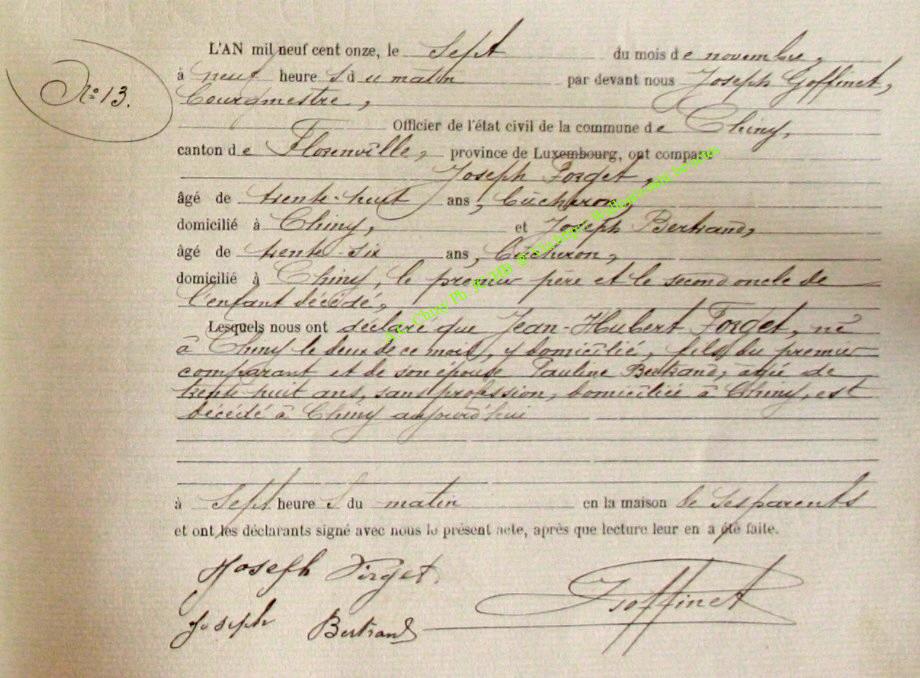 L'AN mil neuf cent onze, le sept du mois de novembre,
à neuf heures du matin par devant nous Joseph Goffinet,
N° 13.
Bourgmestre,
Officier de l'état civil de la commune de Chiny,
canton de Florenville, province de Luxembourg, ont comparu
Joseph Forget,
âgé de trente-huit ans, bûcheron,
domicilié à Chiny, et Joseph Bertrand,
âgé de trente-six ans, bûcheron,
domicilié à Chiny, le premier père et le second oncle de
l'enfant décédé,
Lesquels nous ont déclaré que Jean-Hubert Forget, né
à Chiny le deux de ce mois, y domicilié, fils du premier
comparant et de son épouse Pauline Bertrand, agée de
trente huit ans, sans profession, domiciliée à Chiny, est
décédé à Chiny aujourd'hui
à sept heures du matin en la maison de ses parents
et ont les déclarants signé avec nous le présent acte, après que lecture leur en a été faite.
Joseph Forget
Goffinet
Joseph Bertrand